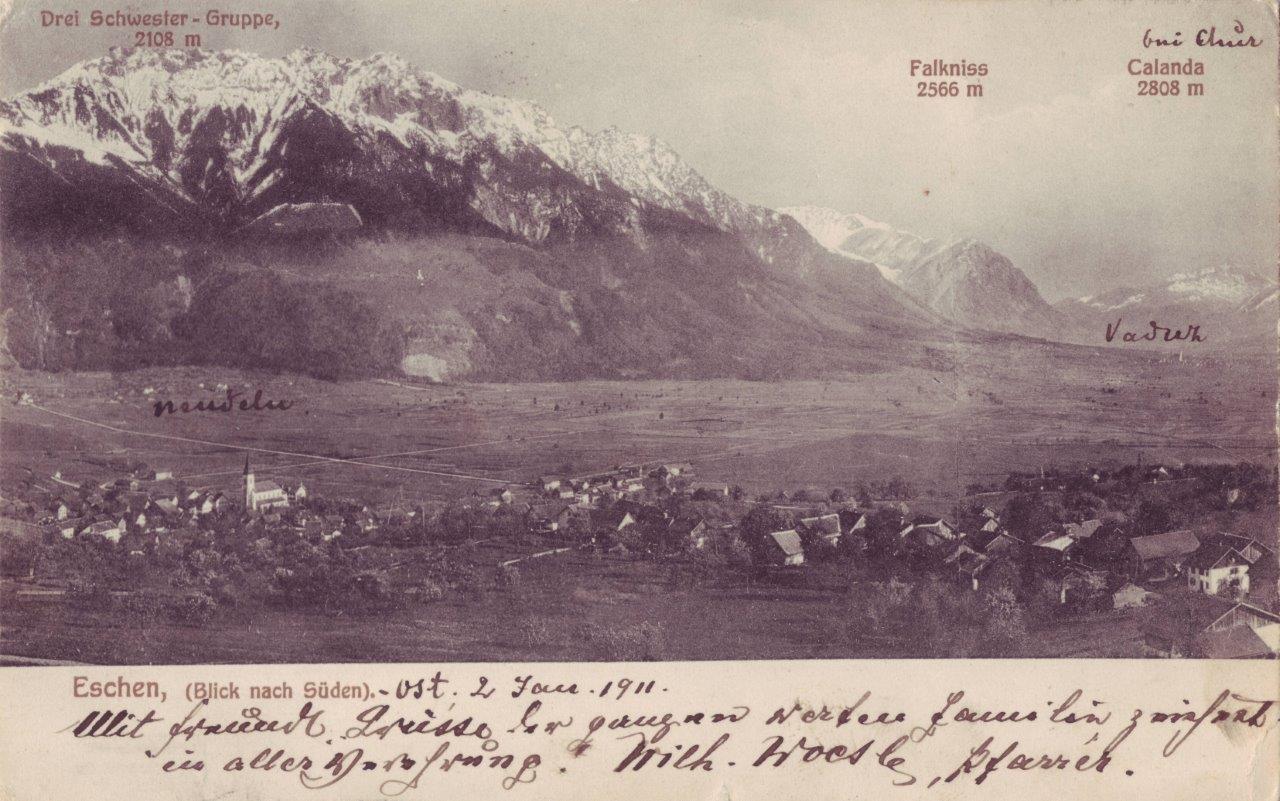 Drei Schwester-Gruppe,
2108 m
bei Chur
Falkniss
2566 m
Calanda
2808 m
Vaduz
Nendeln
Eschen, (Blick nach Süden).-Ost. 2 Jan. 1911.
Mit freundl. Grüsse der ganzen werten Familie zeichnet
in aller Verehrung! Wilh. , Pfarrer.